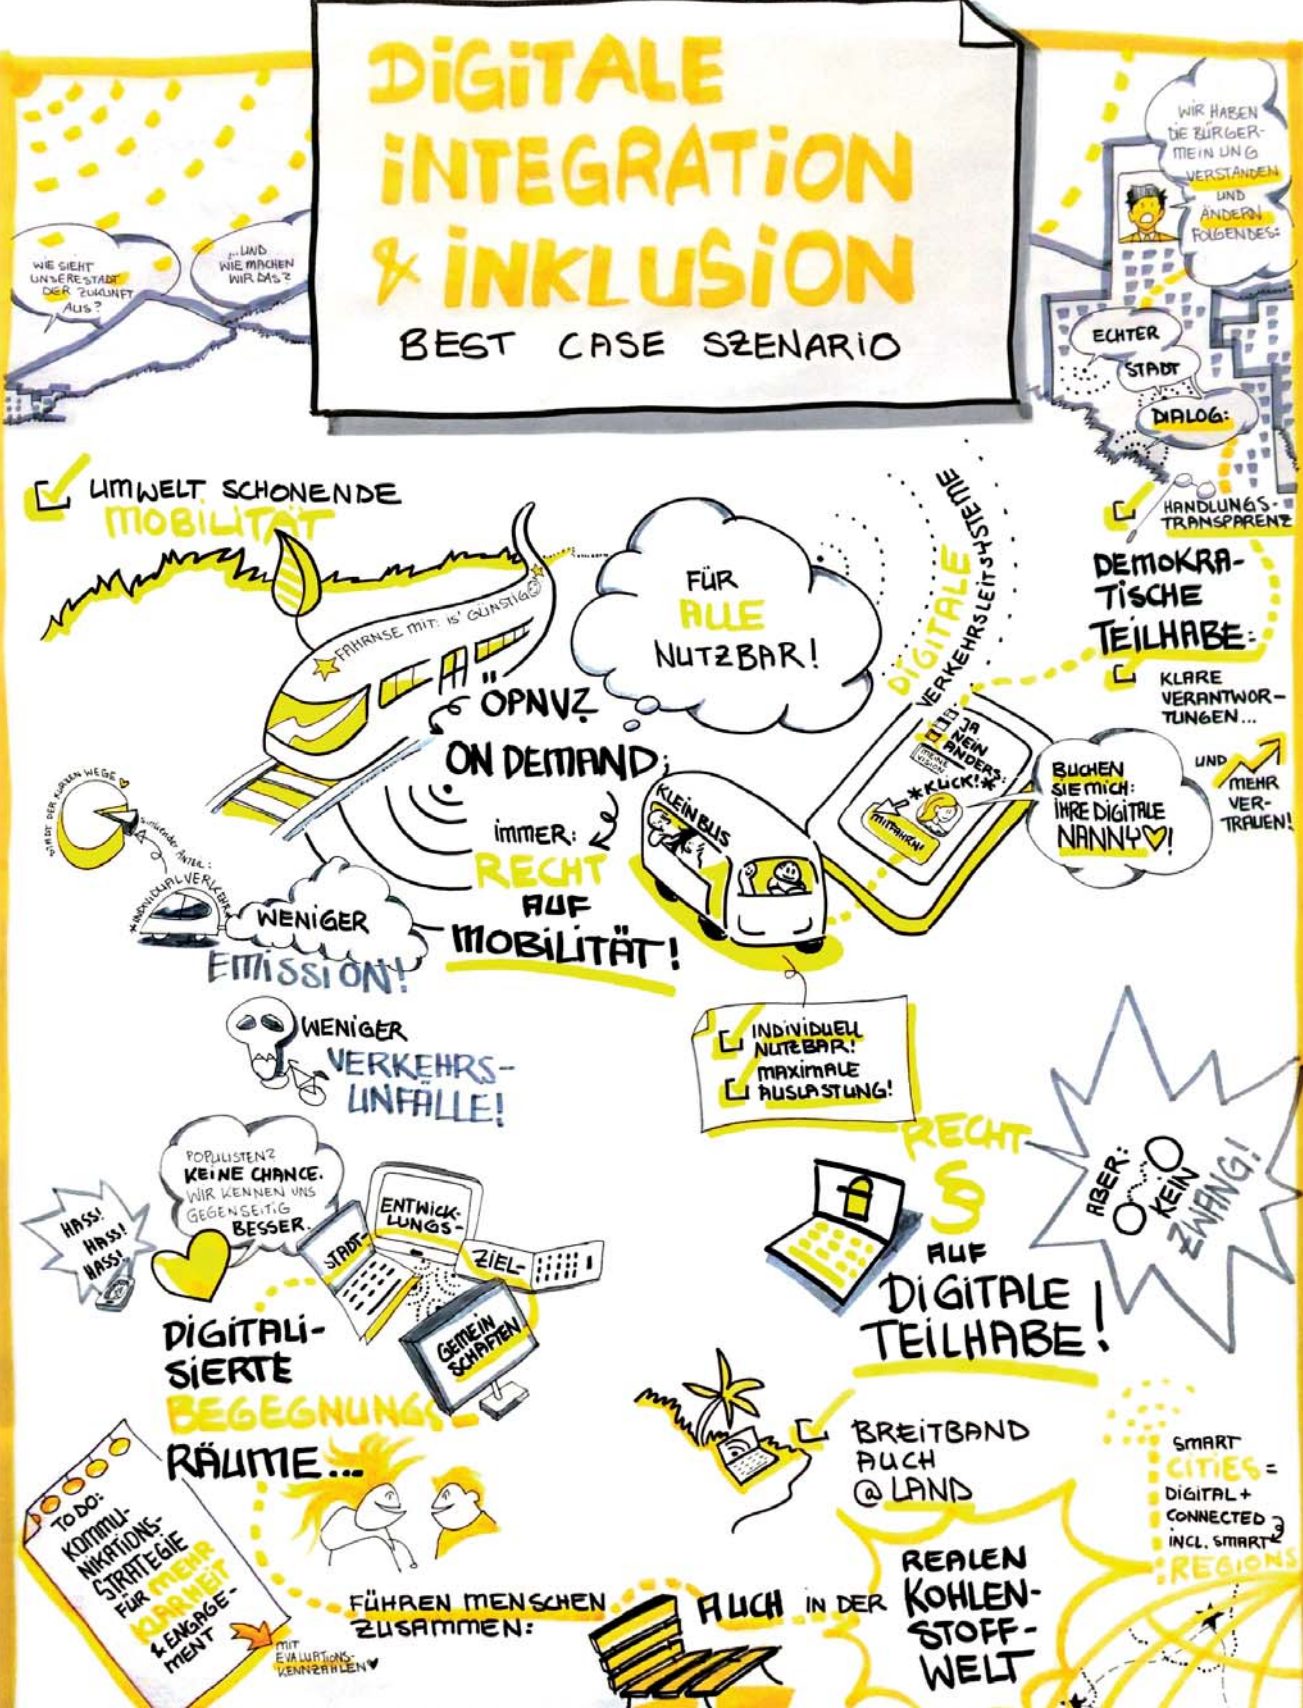 DiGiTALE
iNTEGRATiON
& iNKLUSiON
BEST CASE SZENARiO
WIE SIEHT
UNSERE STADT
DER ZUKUNFT
AUS?
...UND
WIE MACHEN
WIR DAS?
WIR HABEN
DIE BÜRGER-
MEINUNG
VERSTANDEN
UND
ÄNDERN
FOLGENDES:
ECHTER
STADT
DIALOG:
HANDLUNGS-
TRANSPARENZ
DEMOKRA-
TiSCHE
TEiLHABE:
KLARE
VERANTWOR-
TUNGEN...
UND
MEHR
VER-
TRAUEN!
UMWELT SCHONENDE
MOBILITÄT
FAHRNSE MIT: IS' GÜNSTIG
FÜR
ALLE
NUTZBAR!
DiGiTALE
VERKEHRSLEiTSYSTEME
ÖPNV?
ON DEMAND:
KLEINBUS
JA
NEIN
ANDERS:
MEINE
VISION
*KLICK!*
MITFAHREN!
BUCHEN
SIE MICH:
IHRE DIGITALE
NANNY♡!
STADT DER KURZEN WEGE
sinkender ANTEIL:
*INDIVIDUALVERKEHR
iMMER:
RECHT
AUF
MOBiLiTÄT!
WENiGER
EMiSSiON!
WENiGER
VERKEHRS-
UNFÄLLE!
INDiViDUELL
NUTZBAR!
MAXiMALE
AUSLASTUNG!
RECHT
§
AUF
DiGiTALE
TEiLHABE!
ABER:
KEiN
ZWANG!
POPULISTEN?
KEINE CHANCE.
WIR KENNEN UNS
GEGENSEITIG
BESSER.
HASS!
HASS!
HASS!
STADT-
ENTWICK-
LUNGS-
ZIEL-
GEMEIN
SCHAFTEN
DiGiTALi-
SiERTE
BEGEGNUNGS-
RÄUME...
BREiTBAND
AUCH
@ LAND
SMART
CiTiES =
DiGiTAL +
CONNECTED
iNCL. SMART
REGiONS
TO DO:
KOMMU-
NiKATiONS-
STRATEGiE
FÜR MEHR
KLARHEiT
& ENGAGE-
MENT
MiT
EVALUATiONS-
KENNZAHLEN♥
FÜHREN MENSCHEN
ZUSAMMEN:
AUCH iN DER
REALEN
KOHLEN-
STOFF-
WELT